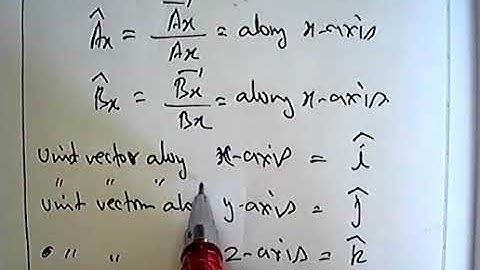 Âx = A⃗x / Ax = along x-axis
B̂x = B⃗x / Bx = along x-axis
Unit vector along x-axis = î
" " "
Unit vector along y-axis = ĵ
" " z-axis = k̂